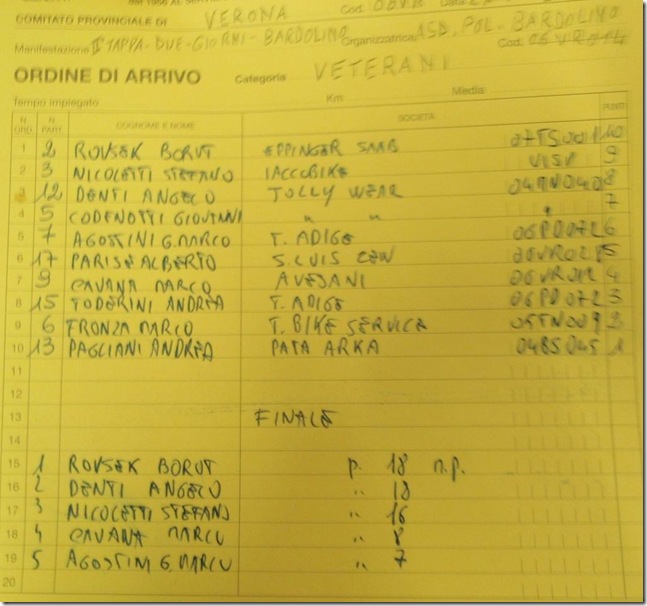 COMITATO PROVINCIALE DI VERONA Cod.
Manifestazione II TAPPA - DUE - GIORNI - BARDOLINO Organizzatrice ASD. POL - BARDOLINO Cod.
ORDINE DI ARRIVO Categoria VETERANI
Tempo impiegato Km. Media
N. ORD. N. PART. COGNOME E NOME SOCIETÀ PUNTI
1 2 ROVSEK BORUT EPPINGER SAAB 10
2 3 NICOLETTI STEFANO IACCOBIKE UISP 9
3 12 DENTI ANGELO JOLLY WEAR 8
4 5 CODENOTTI GIOVANNI " " " 7
5 7 AGOSTINI G. MARCO T. ADIGE 06PD072 6
6 17 PARISE ALBERTO S. LUIS CEN 5
7 9 CAVANA MARCO AVESANI 4
8 15 TODERINI ANDREA T. ADIGE 06PD072 3
9 6 FRONZA MARCO T. BIKE SERVICE
10 13 PAGLIANI ANDREA PATA ARKA 1
11
12
13 FINALE
14
15 1 ROVSEK BORUT p. 18 n.p.
16 2 DENTI ANGELO " 18
17 3 NICOLETTI STEFANO " 16
18 4 CAVANA MARCO " 8
19 5 AGOSTINI G. MARCO " 7
20